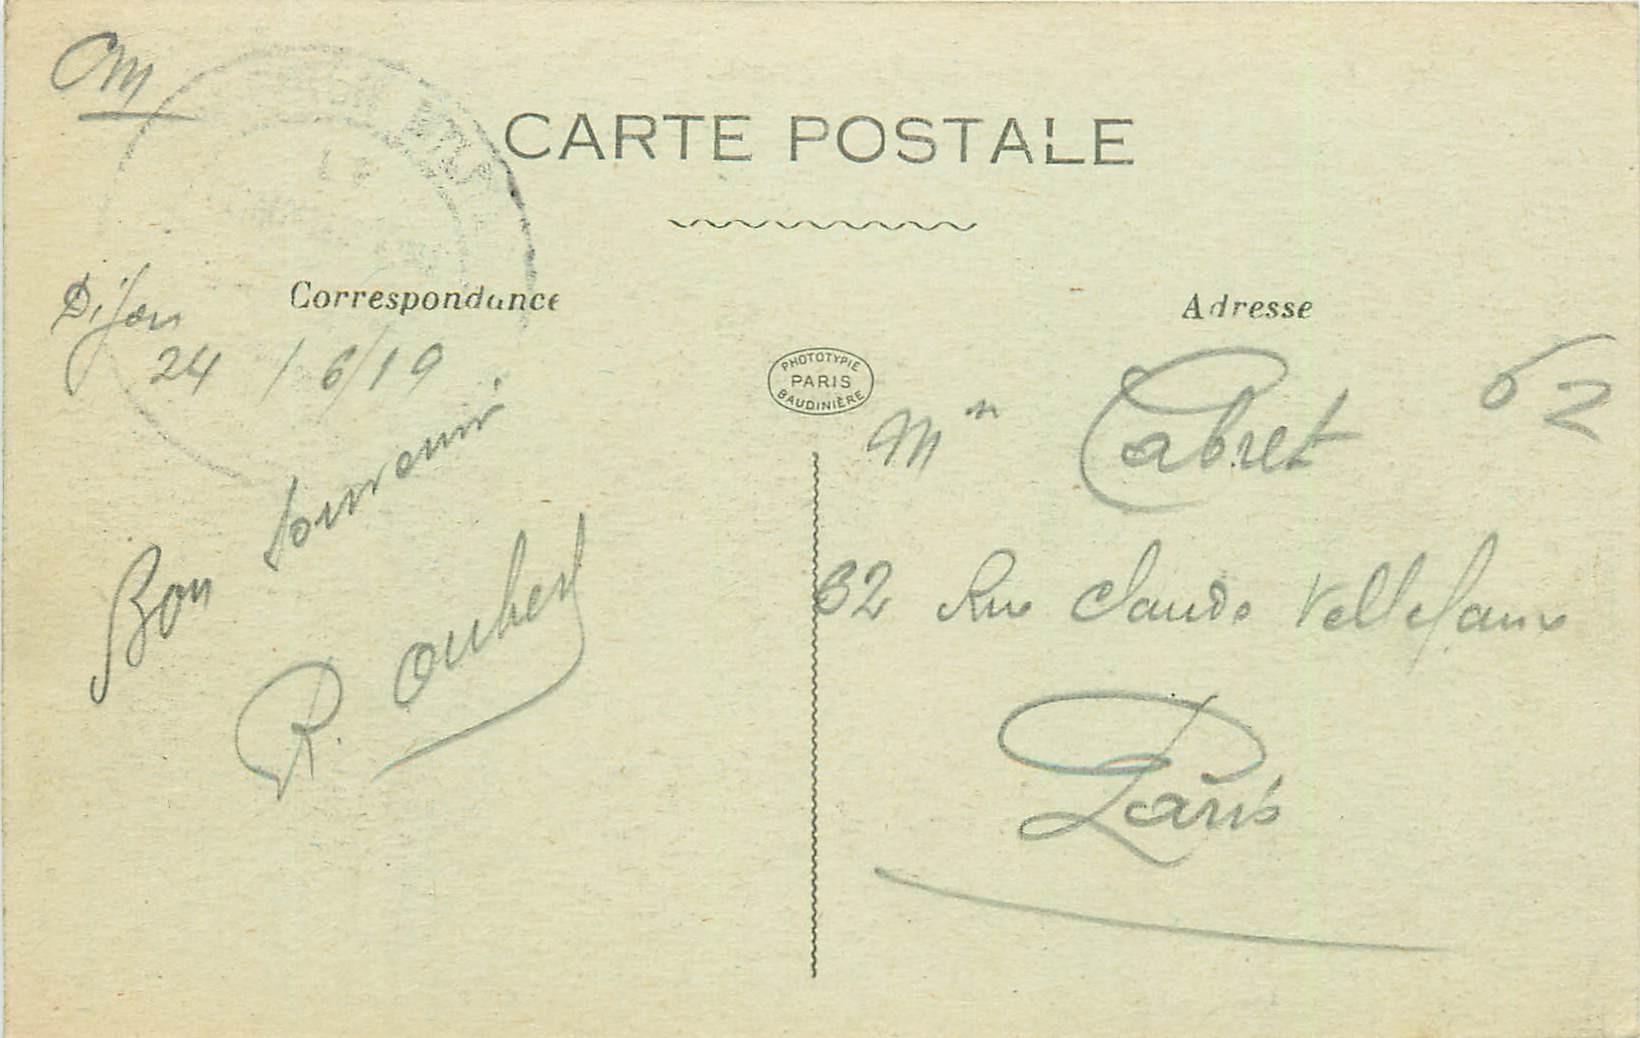 CM
CARTE POSTALE
Correspondance
Adresse
Dijon
24 / 6/19
Bon souvenir
R. Oubert
PHOTOTYPIE
PARIS
BAUDINIÈRE
62
Mr Cabret
32 Rue Claude Vellefaux
Paris